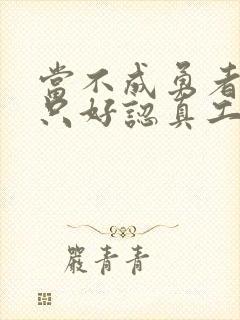 當不成勇者
只好認真工
嚴青青